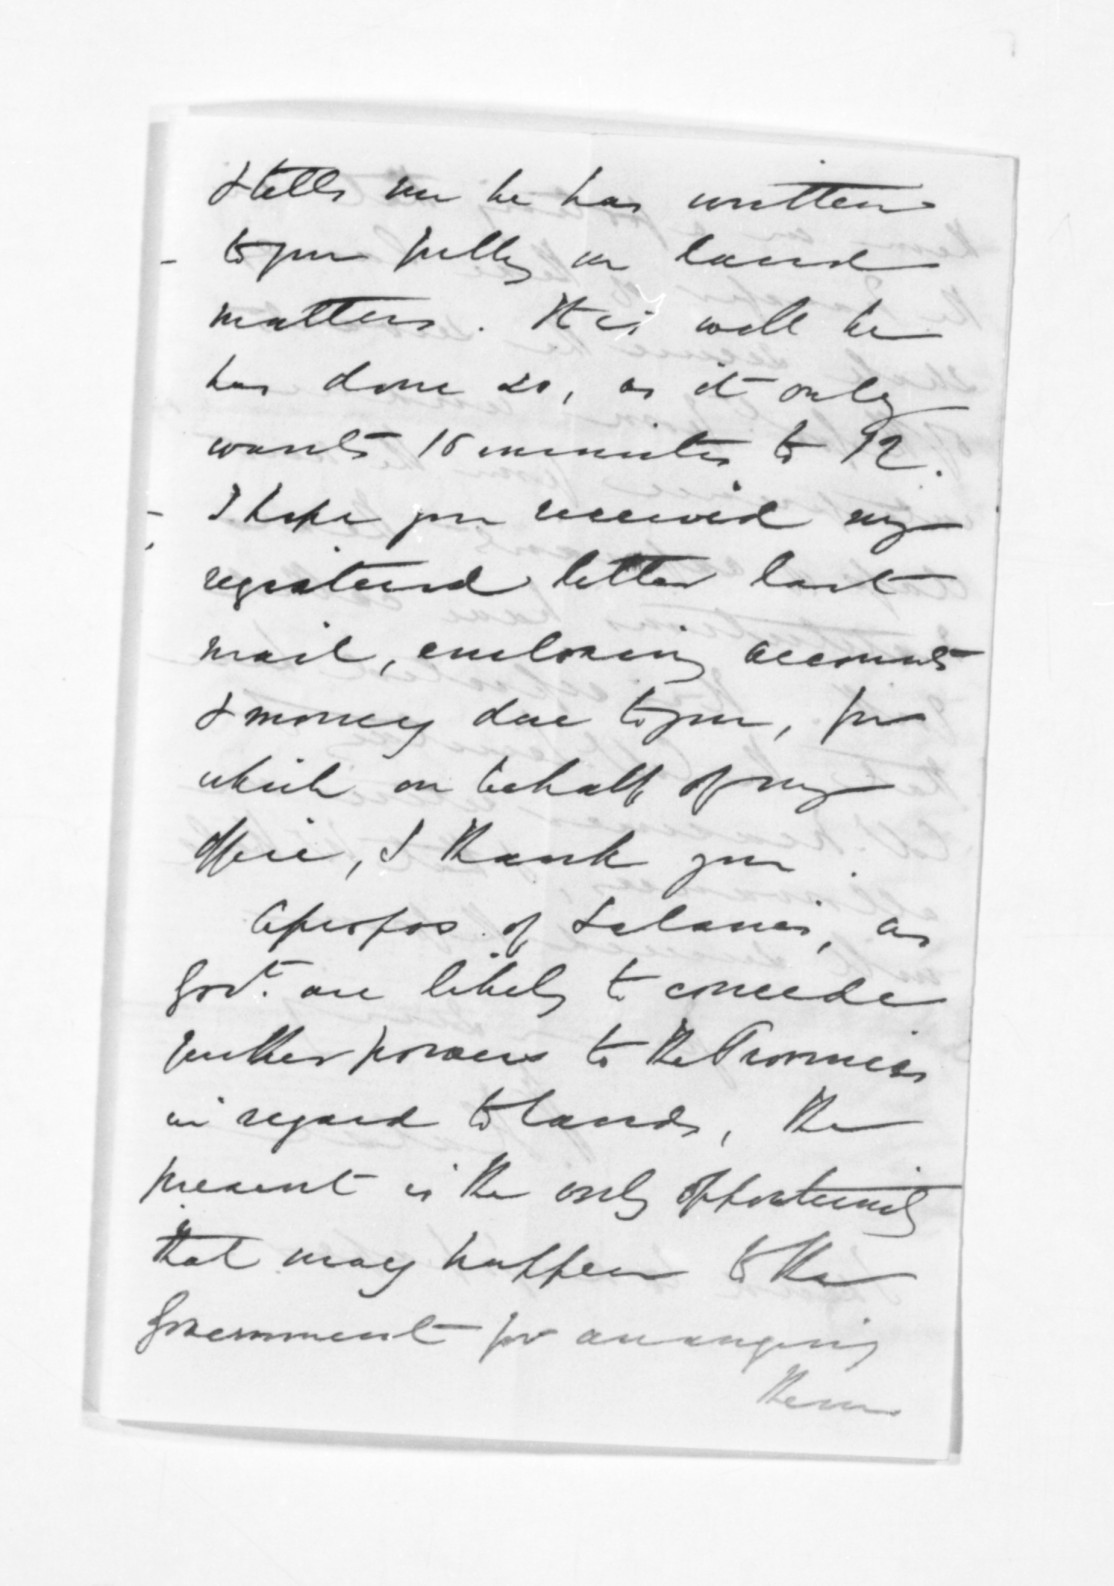 & tells me he has written
to you fully on land
matters. It is well he
has done so, as it only
wants 15 minutes to 12.
I hope you received my
registered letter last
mail, enclosing accounts
& money due to you, for
which on behalf of my
office, I thank you.
Apropos of Salaries, as
Govt. are likely to concede
further powers to the Provinces
in regard to lands, the
present is the only opportunity
that may happen to the
Government for arranging
them